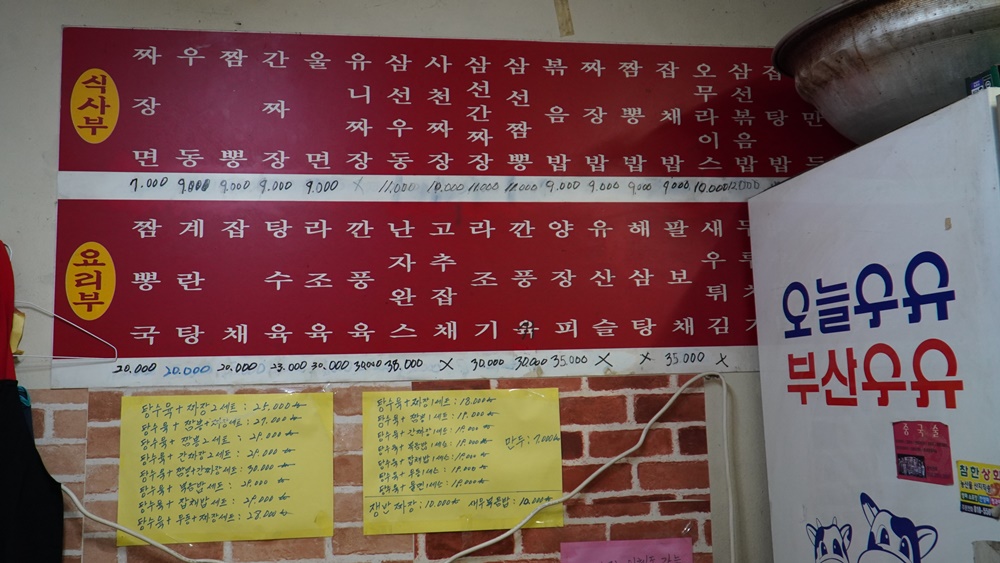 식사부
짜장면 우동 짬뽕 간짜장 울면 유니짜장 삼선우동 사천짜장 삼선간짜장 삼선짬뽕 볶음밥 짜장밥 짬뽕밥 잡채밥 오무라이스 삼선볶음밥
7.000 9.000 9.000 9.000 9.000 X 11.000 10.000 11.000 11.000 9.000 9.000 9.000 9.000 10.000 12.000
요리부
짬뽕국 계란탕 잡채 탕수육 라조육 깐풍육 난자완스 고추잡채 라조기 깐풍육 양장피 유산슬 해삼탕 팔보채 새우튀김
20.000 20.000 20.000 23.000 30.000 30.000 38.000 X 30.000 30.000 35.000 X X 35.000 X
탕수육 + 짜장2세트 : 25.000
탕수육 + 짬뽕+짜장세트 : 27.000
탕수육 + 짬뽕2세트 : 29.000
탕수육 + 간짜장2세트 : 29.000
탕수육 + 짬뽕+간짜장세트 : 30.000
탕수육 + 볶음밥세트 : 29.000
탕수육 + 잡채밥세트 : 29.000
탕수육 + 우동+짜장세트 : 28.000
탕수육 + 짜장1세트 : 18.000
탕수육 + 짬뽕1세트 : 19.000
탕수육 + 간짜장1세트 : 19.000
탕수육 + 볶음밥1세트 : 19.000
탕수육 + 잡채밥1세트 : 19.000
탕수육 + 우동1세트 : 19.000
탕수육 + 울면1세트 : 19.000
만두 : 7.000
쟁반짜장 : 10.000 새우볶음밥 : 10.000
오늘우유
부산우유
중국술
참한상회